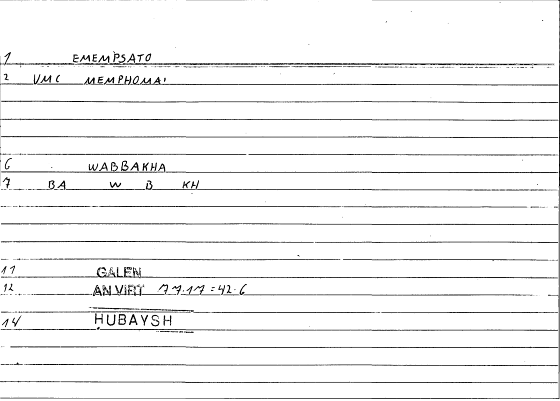 1 EMEMPSATO
2 VMC MEMPHOMAI
6 WABBAKHA
7 BA W B KH
11 GALEN
12 AN VIRT 77.17 = 42.6
14 ḤUBAYSH